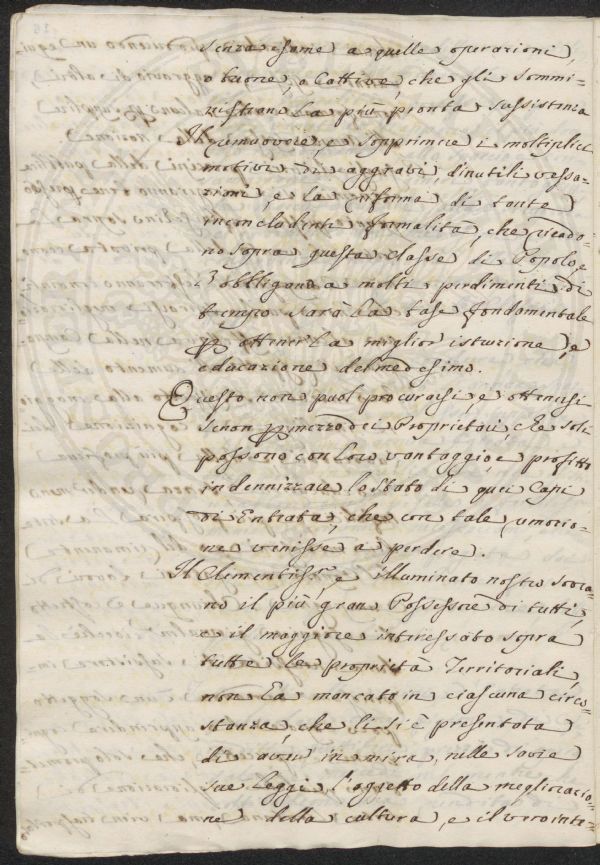 senza esame a quelle operazioni,
o buone, o Cattive, che gli sommi-
nistrano la più pronta sussistenza
Il rimuovere, e sopprimere i moltiplici
motivi di aggravi, d'inutili vessa-
zioni, e la riforma di tante
inconcludenti formalità, che ricado-
no sopra questa classe di Popolo, e
l'obbligano a molti perdimenti di
tempo sarà la base fondamentale
p ottener la miglior istruzione, e
educazione del medesimo.
Questo non puol procurarsi, e ottenersi
senon p mezzo dei Proprietari, che soli
possono con loro vantaggio, e profitto
indennizzare lo Stato di quei Capi
di Entrata, che con tale remozio-
ne venisse a perdere.
Il Clementiss.o, e illuminato nostro Sovra-
no il più gran Possessore di tutti,
e il maggiore interessato sopra
tutte le proprietà Territoriali,
non ha mancato in ciascuna circo-
stanza, che li si è presentata
di aver in mira, nelle savie
sue Leggi l'oggetto della megliorazio-
ne della cultura, e il vero inte-